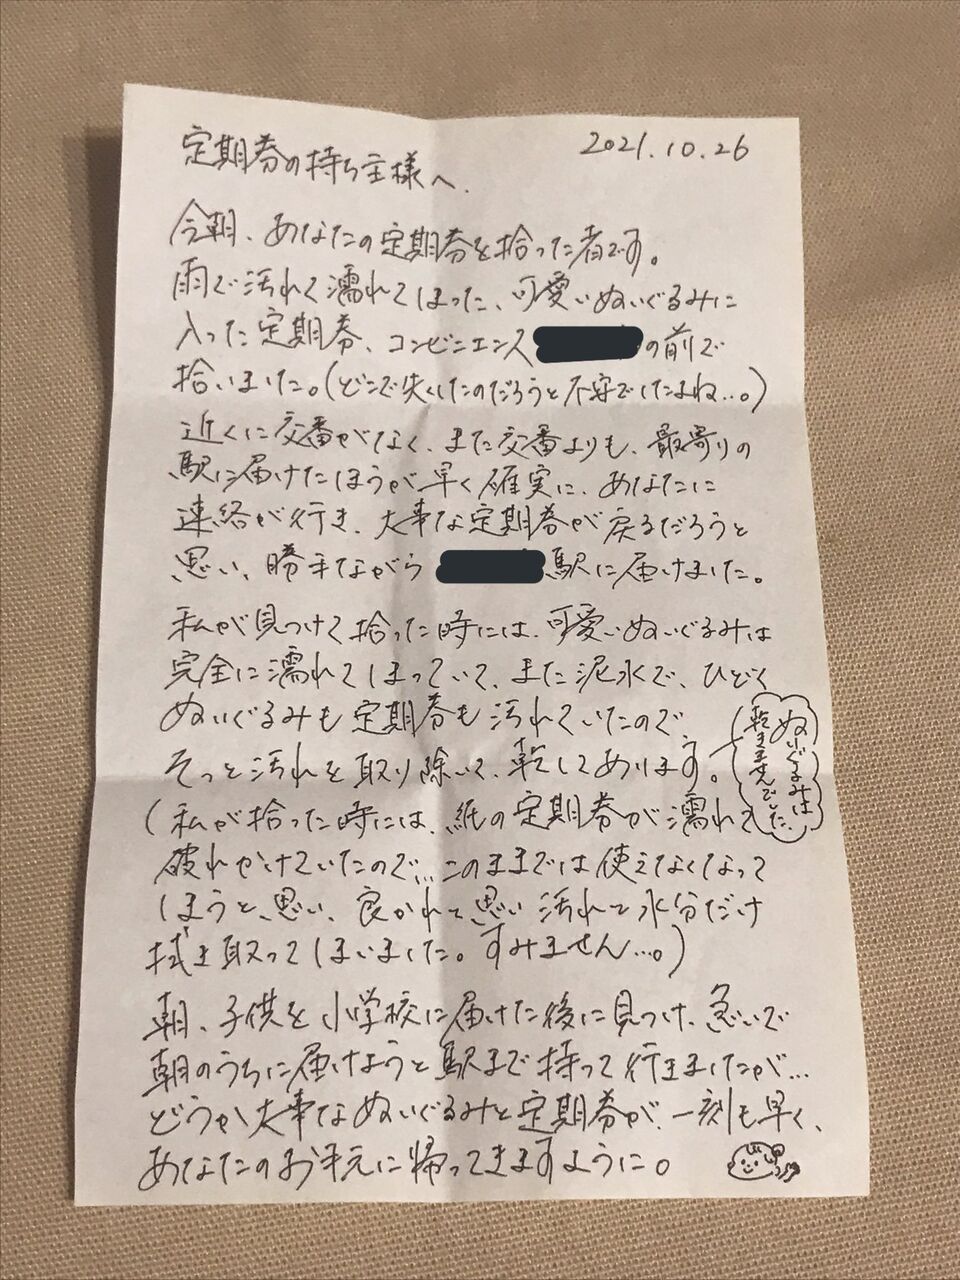 2021.10.26
定期券の持ち主様へ.
今朝、あなたの定期券を拾った者です。
雨で汚れて濡れてしまった、可愛いぬいぐるみに
入った定期券、コンビニエンス
の前で
拾いました。(どこで失くしたのだろうと不安でしたよね…。)
近くに交番がなく、また交番よりも、最寄りの
駅に届けたほうが早く確実に、あなたに
連絡が行き、大事な定期券が戻るだろうと
思い、勝手ながら
駅に届けました。
私が見つけて拾った時には、可愛いぬいぐるみは
完全に濡れてしまっていて、また泥水で、ひどく
ぬいぐるみも定期券も汚れていたので、
そっと汚れを取り除いて、乾してあります。
ぬいぐるみは
乾きませんでした
(私が拾った時には、紙の定期券が濡れて
破れかけていたので…このままでは使えなくなって
しまうと思い、良かれと思い汚れと水分だけ
拭き取ってしまいました。すみません…。)
朝、子供を小学校に届けた後に見つけ、急いで
朝のうちに届けようと駅まで持って行きましたが…
どうか大事なぬいぐるみと定期券が、一刻も早く、
あなたのお手元に帰ってきますように。